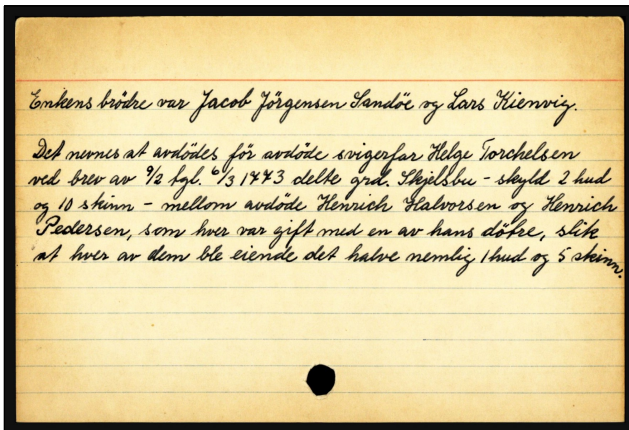 Enkens brödre var Jacob Jörgensen Sandöe og Lars Kienvig.
Det nevnes at avdödes för avdöde svigerfar Helge Torchelsen
ved brev av 9/2 tgl. 6/3 1743 delte grd. Skjelsbu - skyld 2 hud
og 10 skinn - mellom avdöde Henrich Halvorsen og Henrich
Pedersen, som hver var gift med en av hans döfre, slik
at hver av dem ble eiende det halve nemlig 1 hud og 5 skinn.